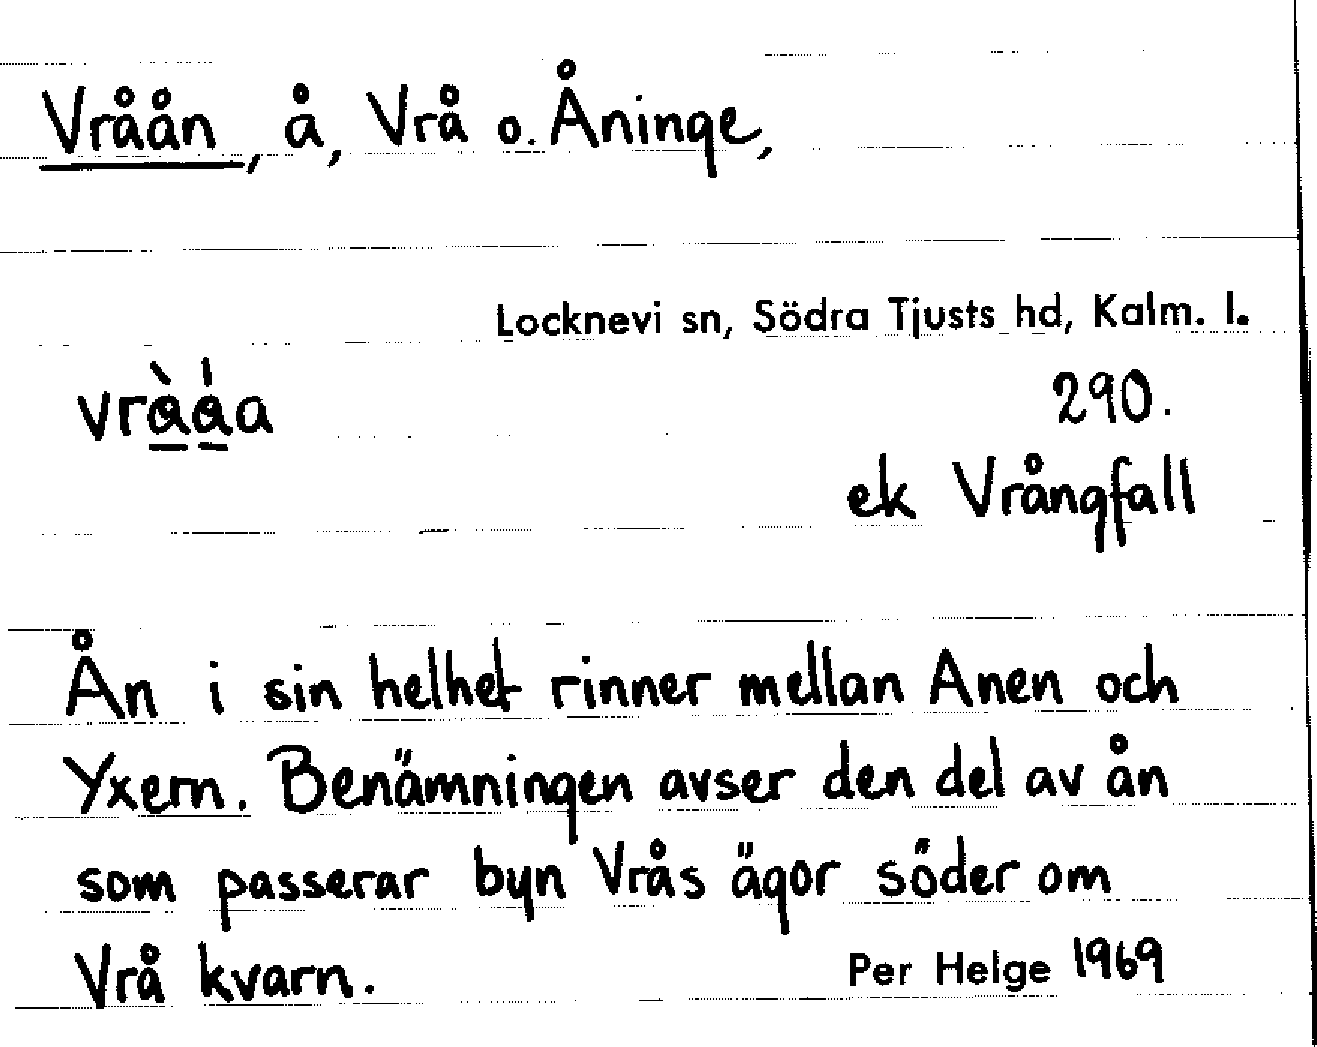 Vråån, å, Vrå o. Åninge,
Locknevi sn, Södra Tjusts hd, Kalm. l.
vrà̲á̲a
290.
ek Vrångfall
Ån i sin helhet rinner mellan Anen och
Yxern. Benämningen avser den del av ån
som passerar byn Vrås ägor söder om
Vrå kvarn.
Per Helge 1969